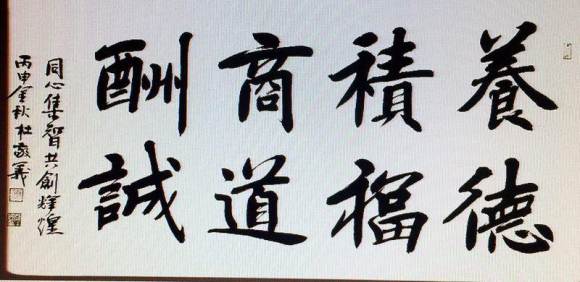 養德
積福
商道
酬誠
同心集智共創輝煌
丙申金秋杜敬義